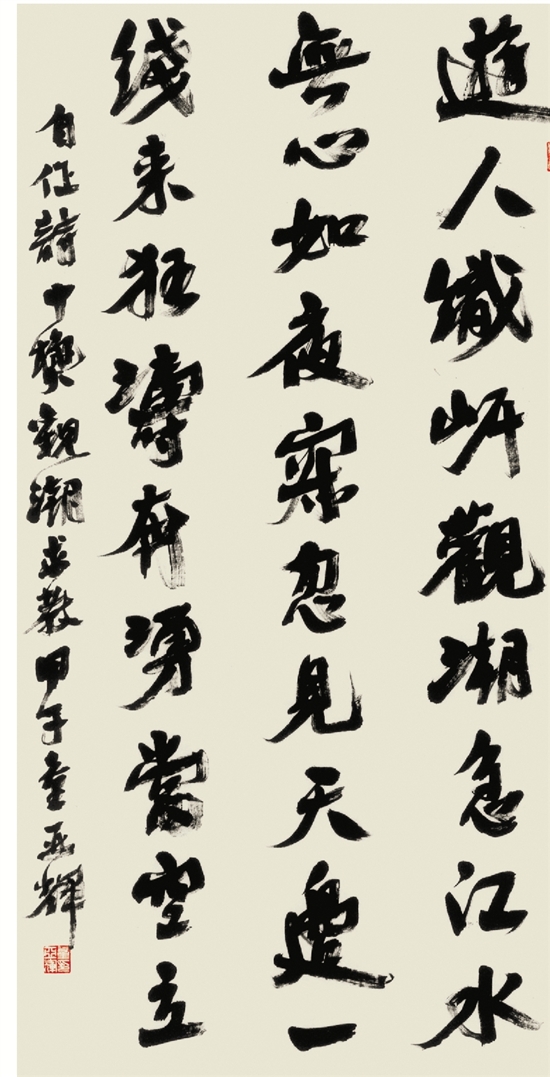 遊人織岸觀潮急江水
無心如夜忽見天邊一
綫来狂濤奔湧空立
自作詩觀潮求教甲午童亚輝